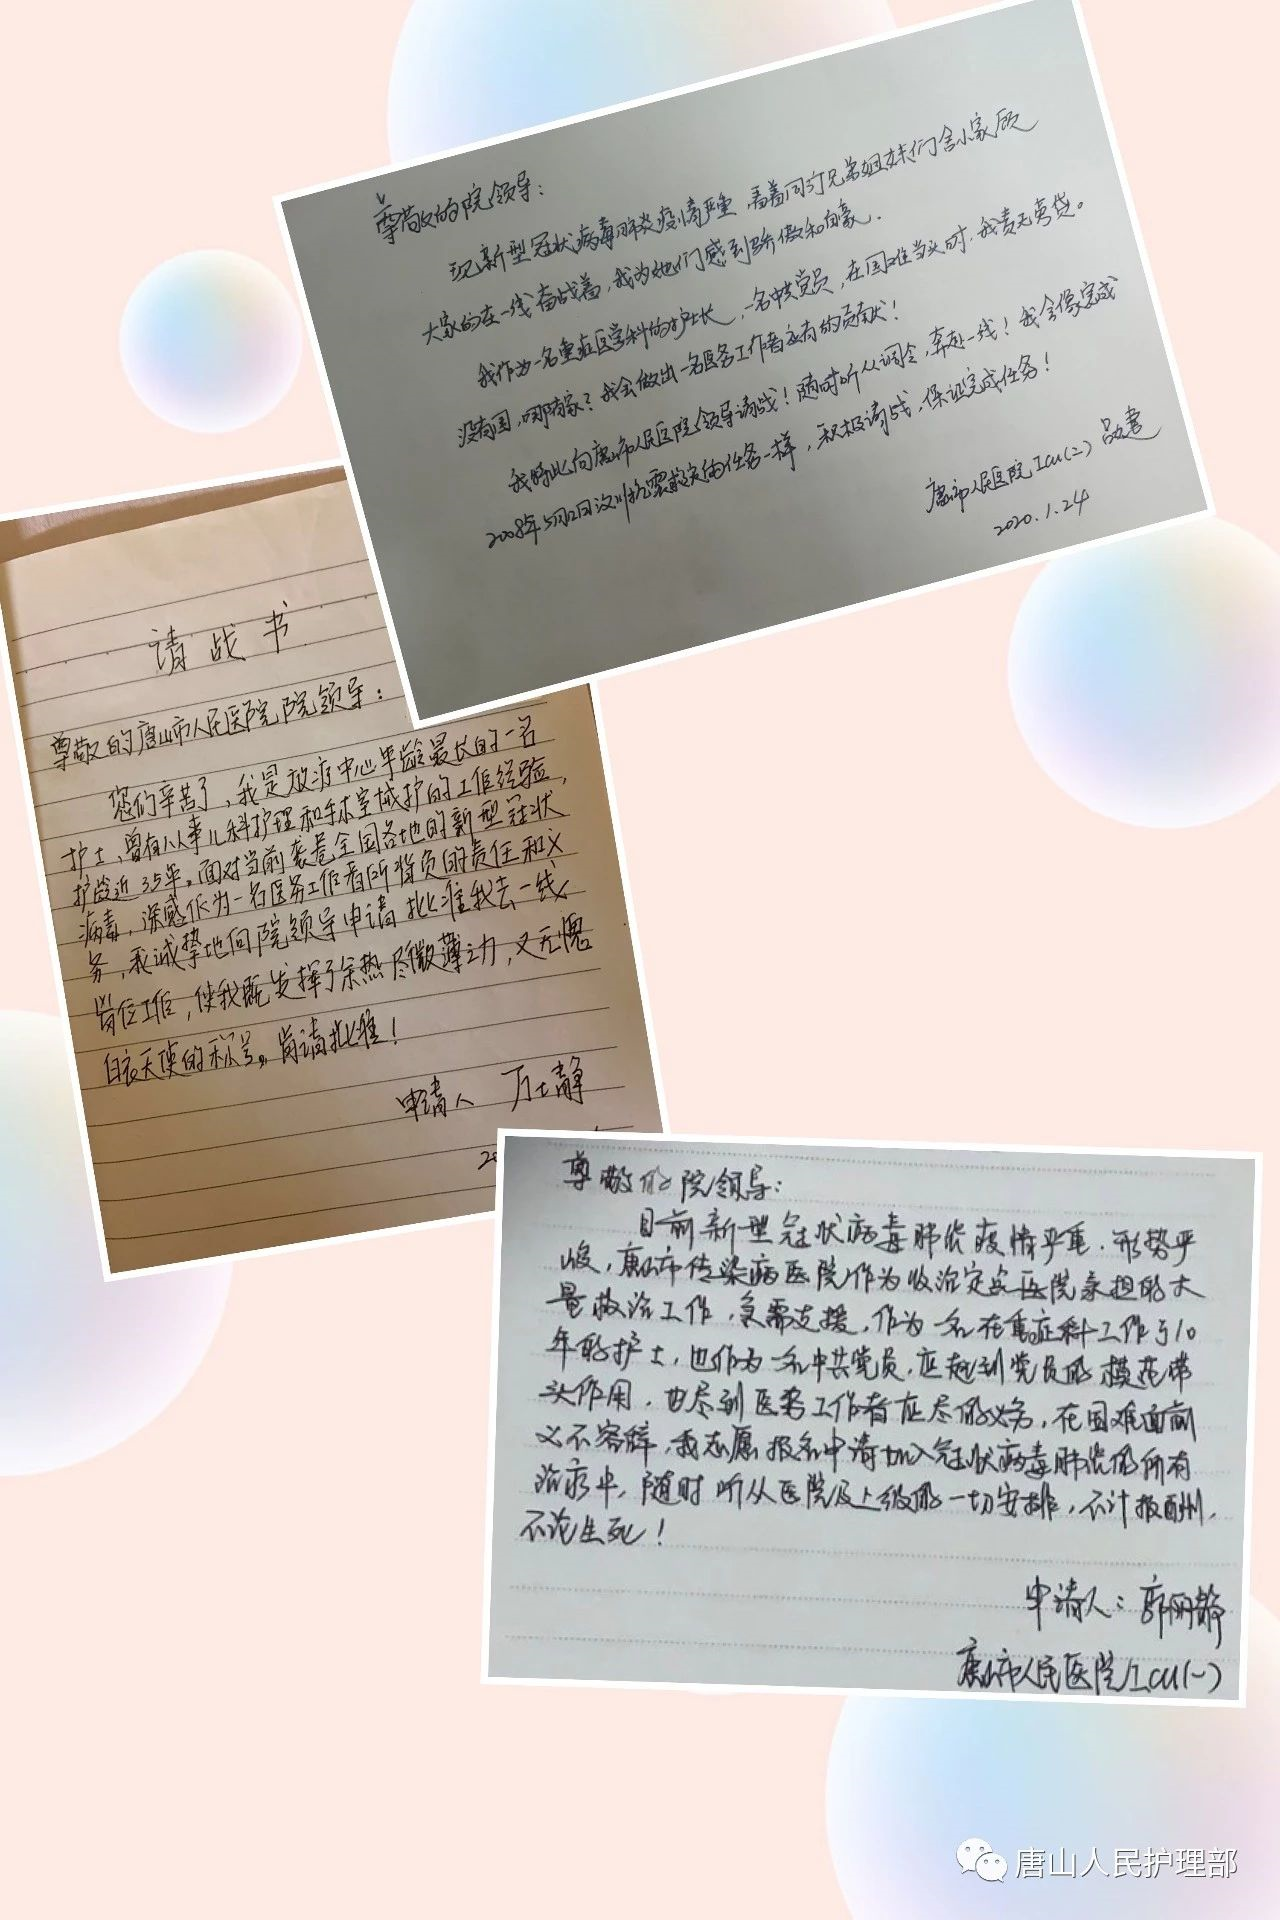 尊敬的院领导：
现新型冠状病毒肺炎疫情严重，看着同行兄弟姐妹们舍小家顾
大家的在一线奋战着，我为她们感到骄傲和自豪．
我作为一名重症医学科的护士长，一名中共党员，在国难当头时，我责无旁贷。
没有国，哪有家？我会做出一名医务工作者应有的贡献！
我特此向唐山市人民医院领导请战！随时听从调令，奔赴一线！我会像完成
2008年5月12日汶川抗震救灾的任务一样，积极请战，保证完成任务！
唐山市人民医院ICU(二)
2020.1.24
请战书
尊敬的唐山市人民医院院领导：
您们辛苦了，我是放疗中心年龄最长的一名
护士，曾有从事儿科护理和手术室域护的工作经验，
护龄近35年。面对当前袭卷全国各地的新型冠状
病毒，深感作为一名医务工作者所背负的责任和义
务，我诚挚地向院领导申请批准我去一线
岗位工作，使我既发挥了余热尽微薄之力，又无愧
白衣天使的称号。肯请批准！
申请人 万士静
尊敬的院领导：
目前新型冠状病毒肺炎疫情严重．形势严
峻，唐山市传染病医院作为收治定点医院承担的大
量救治工作，急需支援，作为一名在重症科工作了10
年的护士，也作为一名中共党员，应起到党员的模范带
头作用，也尽到医务工作者应尽的义务，在国难面前
义不容辞，我志愿报名申请加入冠状病毒肺炎的所有
治疗中，随时听从医院及上级的一切安排，不计报酬，
不论生死！
申请人：郭丽静
唐山市人民医院ICU(一)
唐山人民护理部